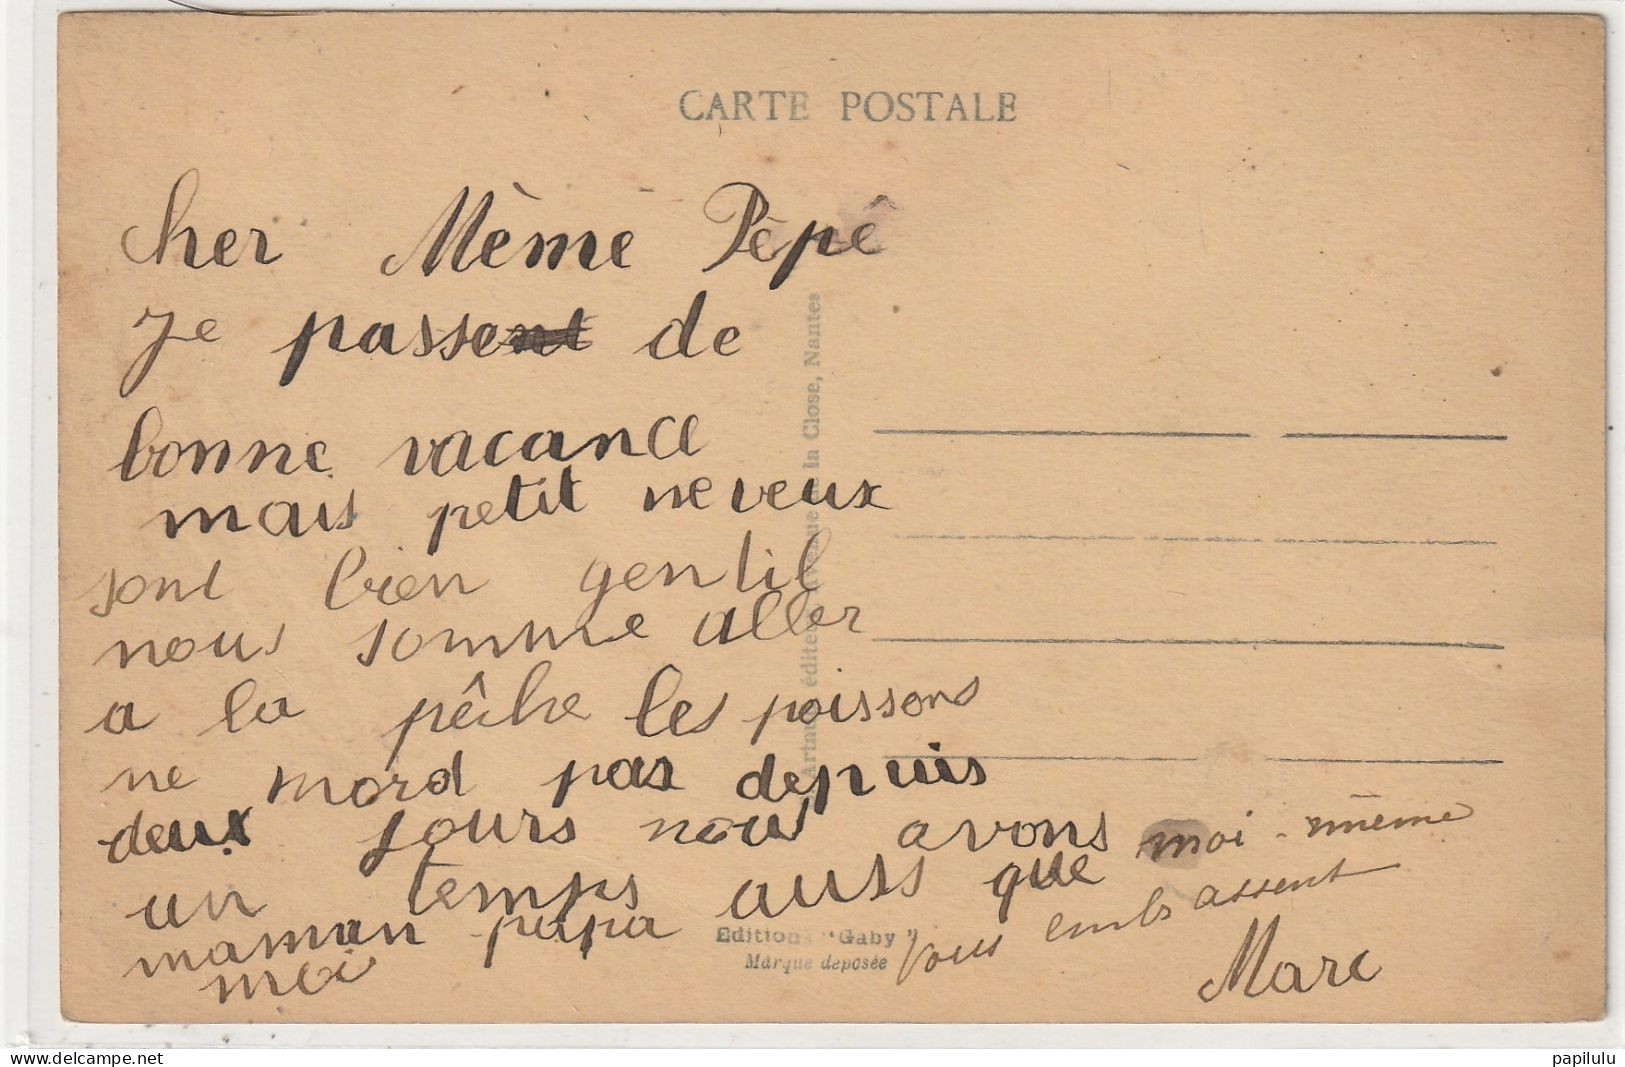 CARTE POSTALE
cher Mèmè Pèpê
Je passent de
bonne vacance
mais petit neveux
sont bien gentil
nous somme aller
a la pêche les poissons
ne mord pas depuis
deux jours nous avons
un temps auss que moi-mème
maman papa vous embrassent
moi Marc
Artaud éditeur, Avenue de la Close, Nantes
Editions "Gaby"
Marque deposée
papilulu
www.delcampe.net